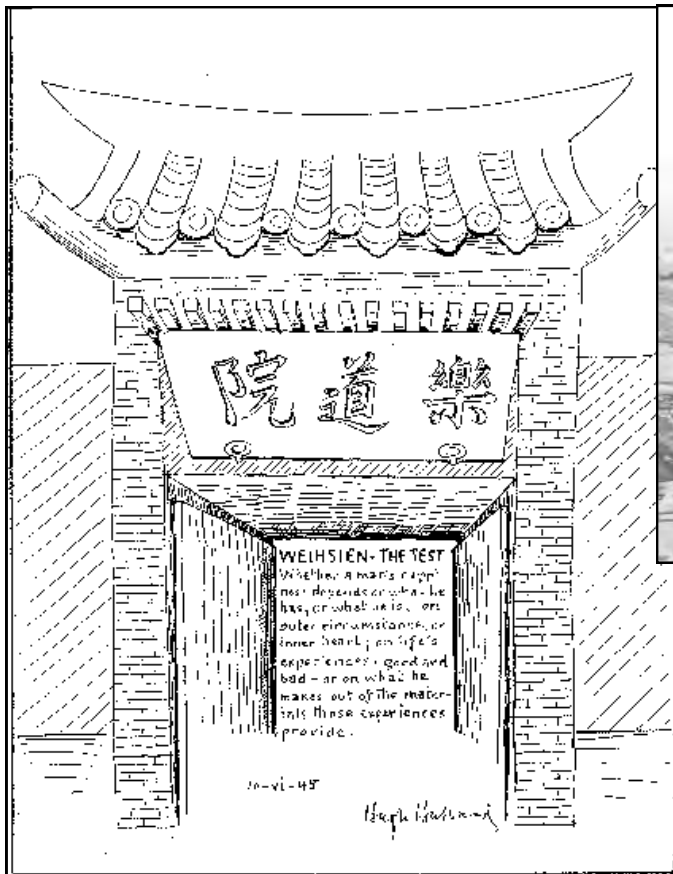 院道樂
WEIHSIEN - THE TEST
Whether a man's happi-
ness depends on what he
has, or what he is; on
outer circumstance, or
inner heart; on life's
experiences - good and
bad - or on what he
makes out of the mater-
ials those experiences
provide.
10-vi-45
Hugh Hubbard